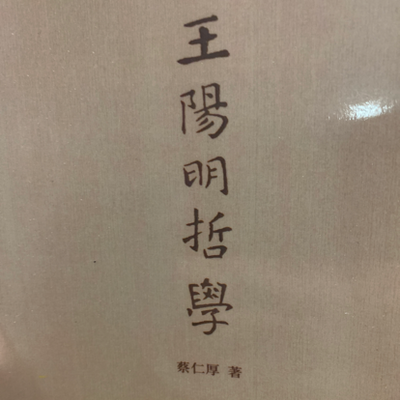 王陽明哲學
蔡仁厚 著